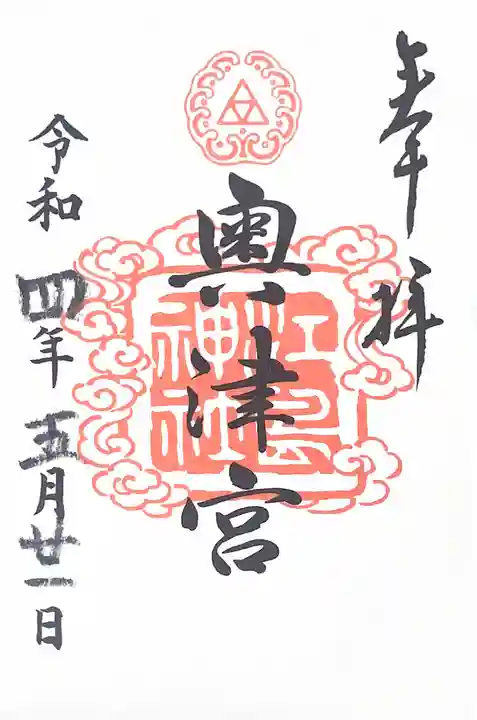 奉拝
奥津宮
江島
神社
令和四年五月廿一日